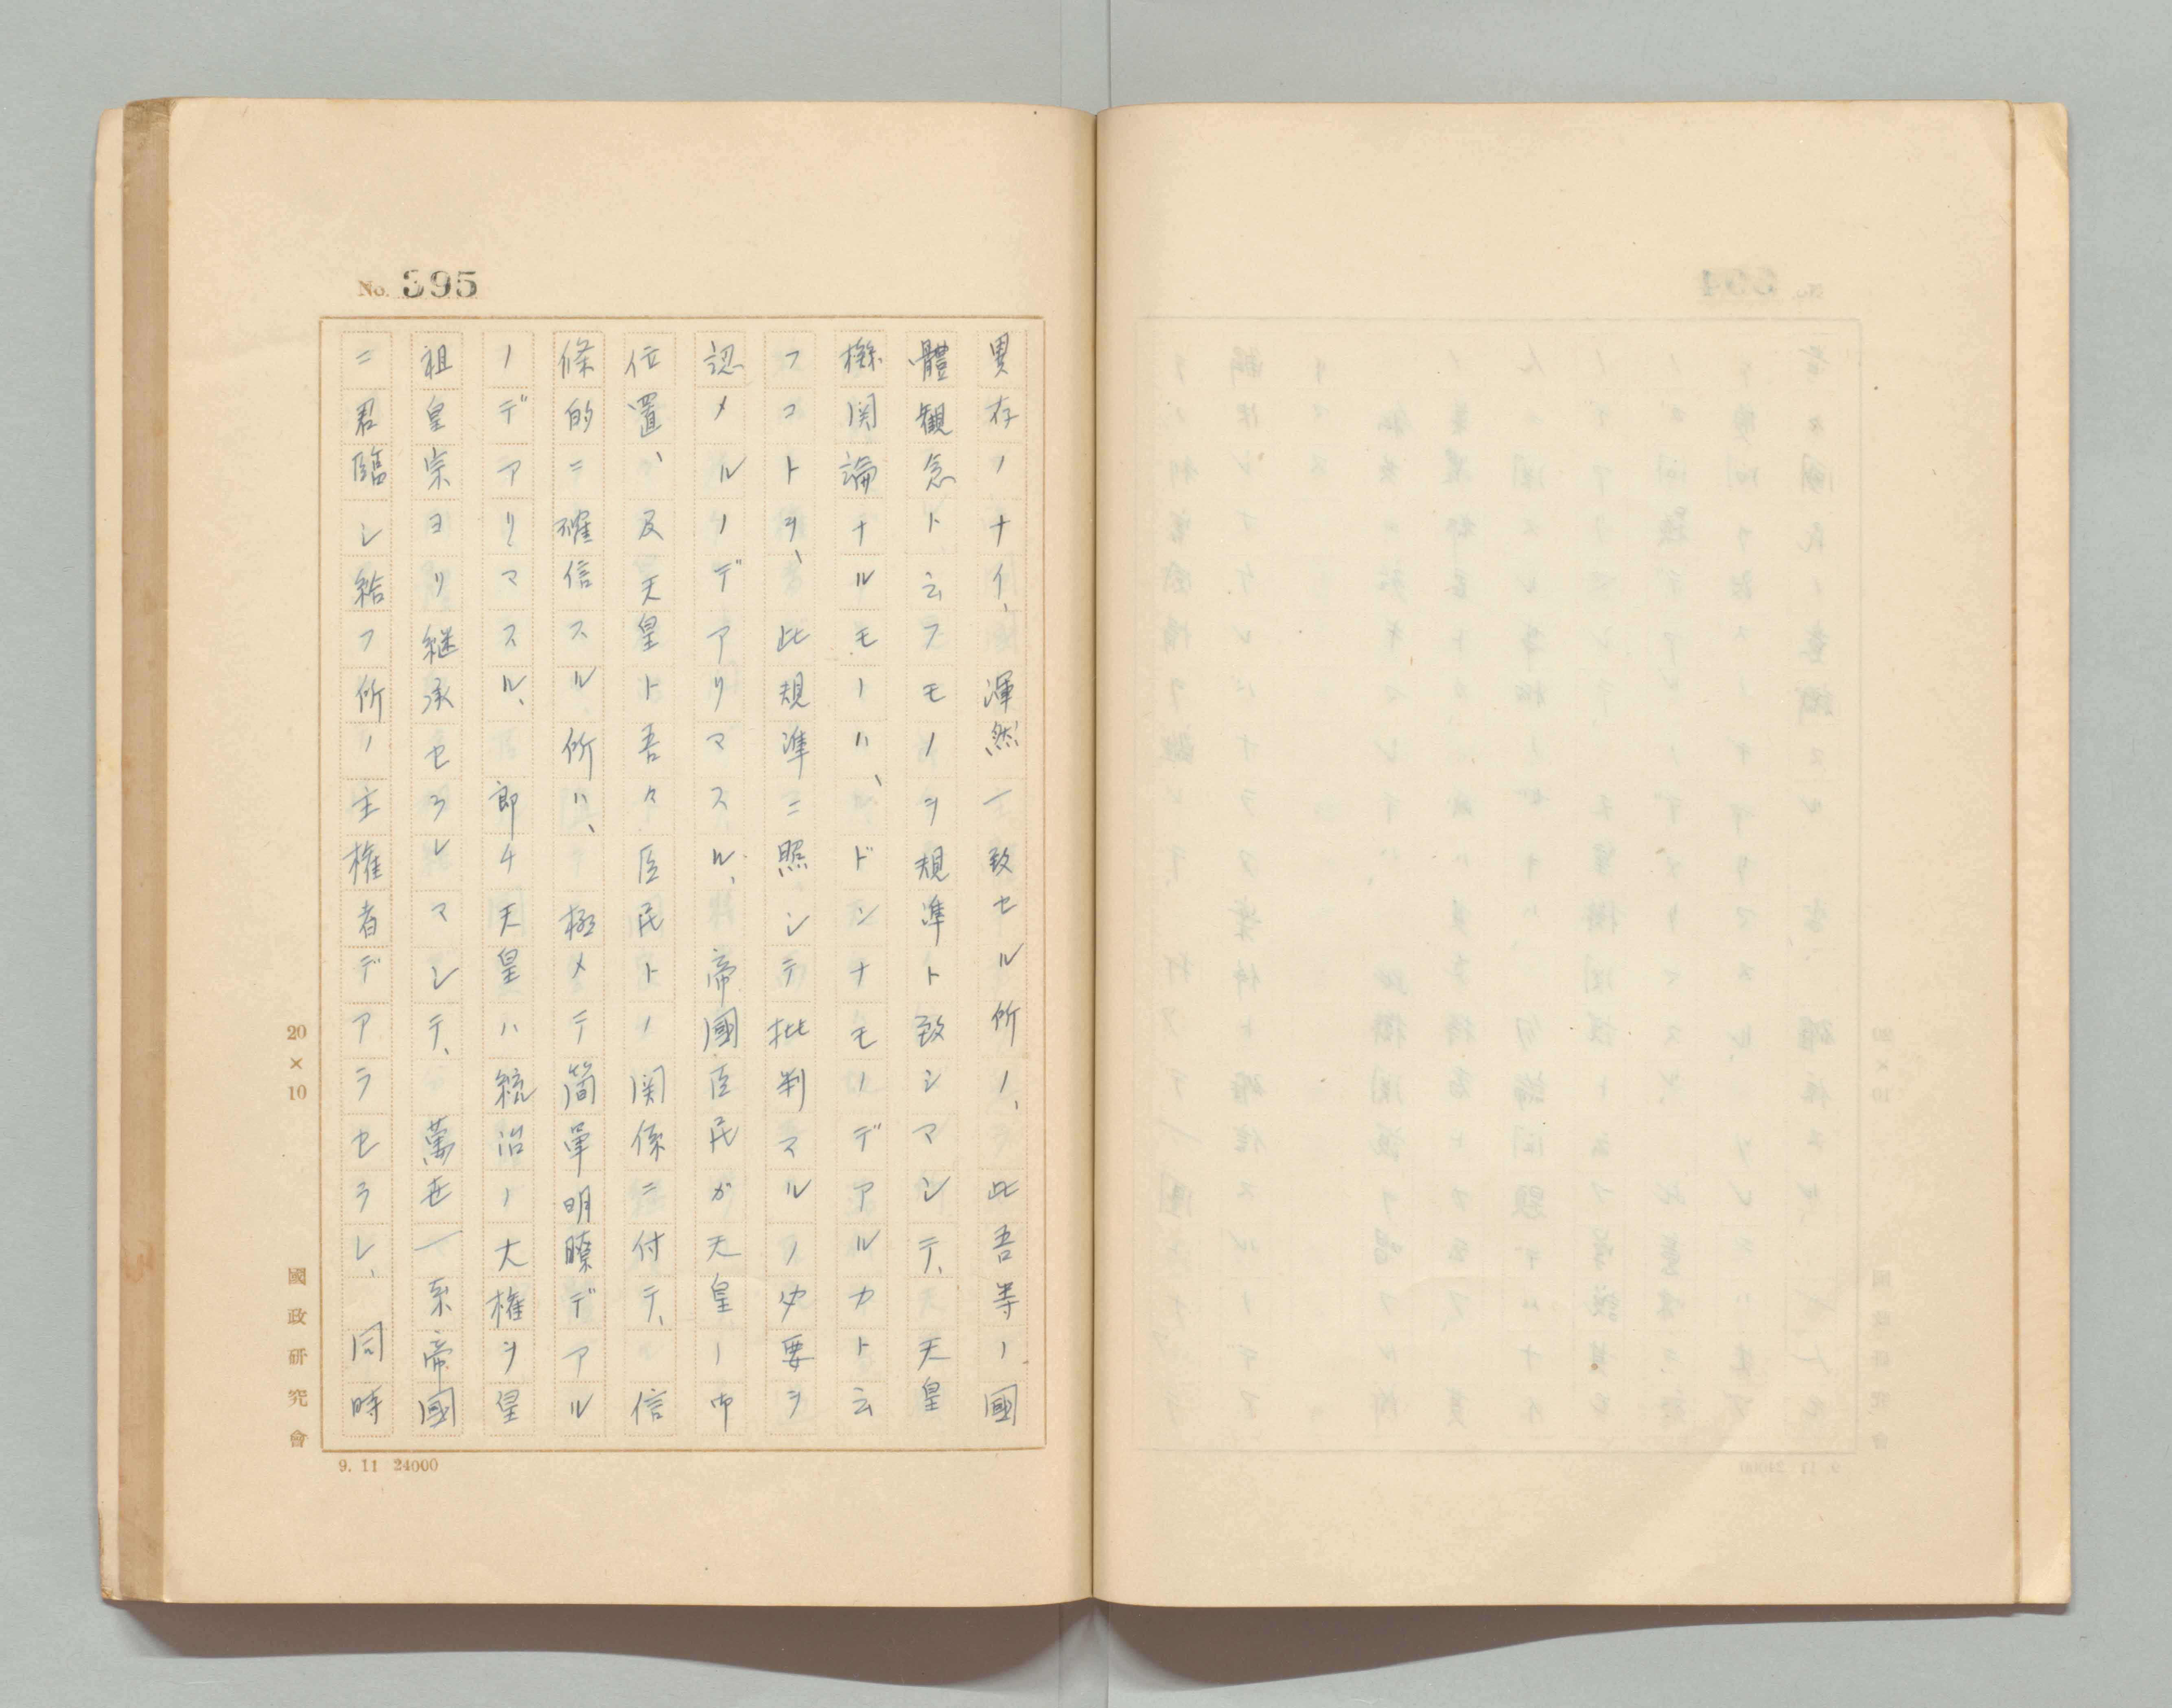 No. 395
異存ノナイ、渾然一致セル所ノ、此吾等ノ國
體観念ト云フモノヲ規準ト致シマシテ、天皇
機関論ナルモノハ、ドンナモノデアルカト云
フコトヲ、此規準ニ照シテ批判スルノ必要ヲ
認メルノデアリマスル、帝國臣民ガ天皇ノ御
位置、及天皇ト吾々臣民トノ関係ニ付テ、信
條的ニ確信スル所ハ、極メテ簡單明瞭デアル
ノデアリマスル、即チ天皇ハ統治ノ大権ヲ皇
祖皇宗ヨリ継承セラレマシテ、萬世一系帝國
ニ君臨シ給フ所ノ主権者デアラセラレ、同時
20×10
國政研究會
9. 11 24000